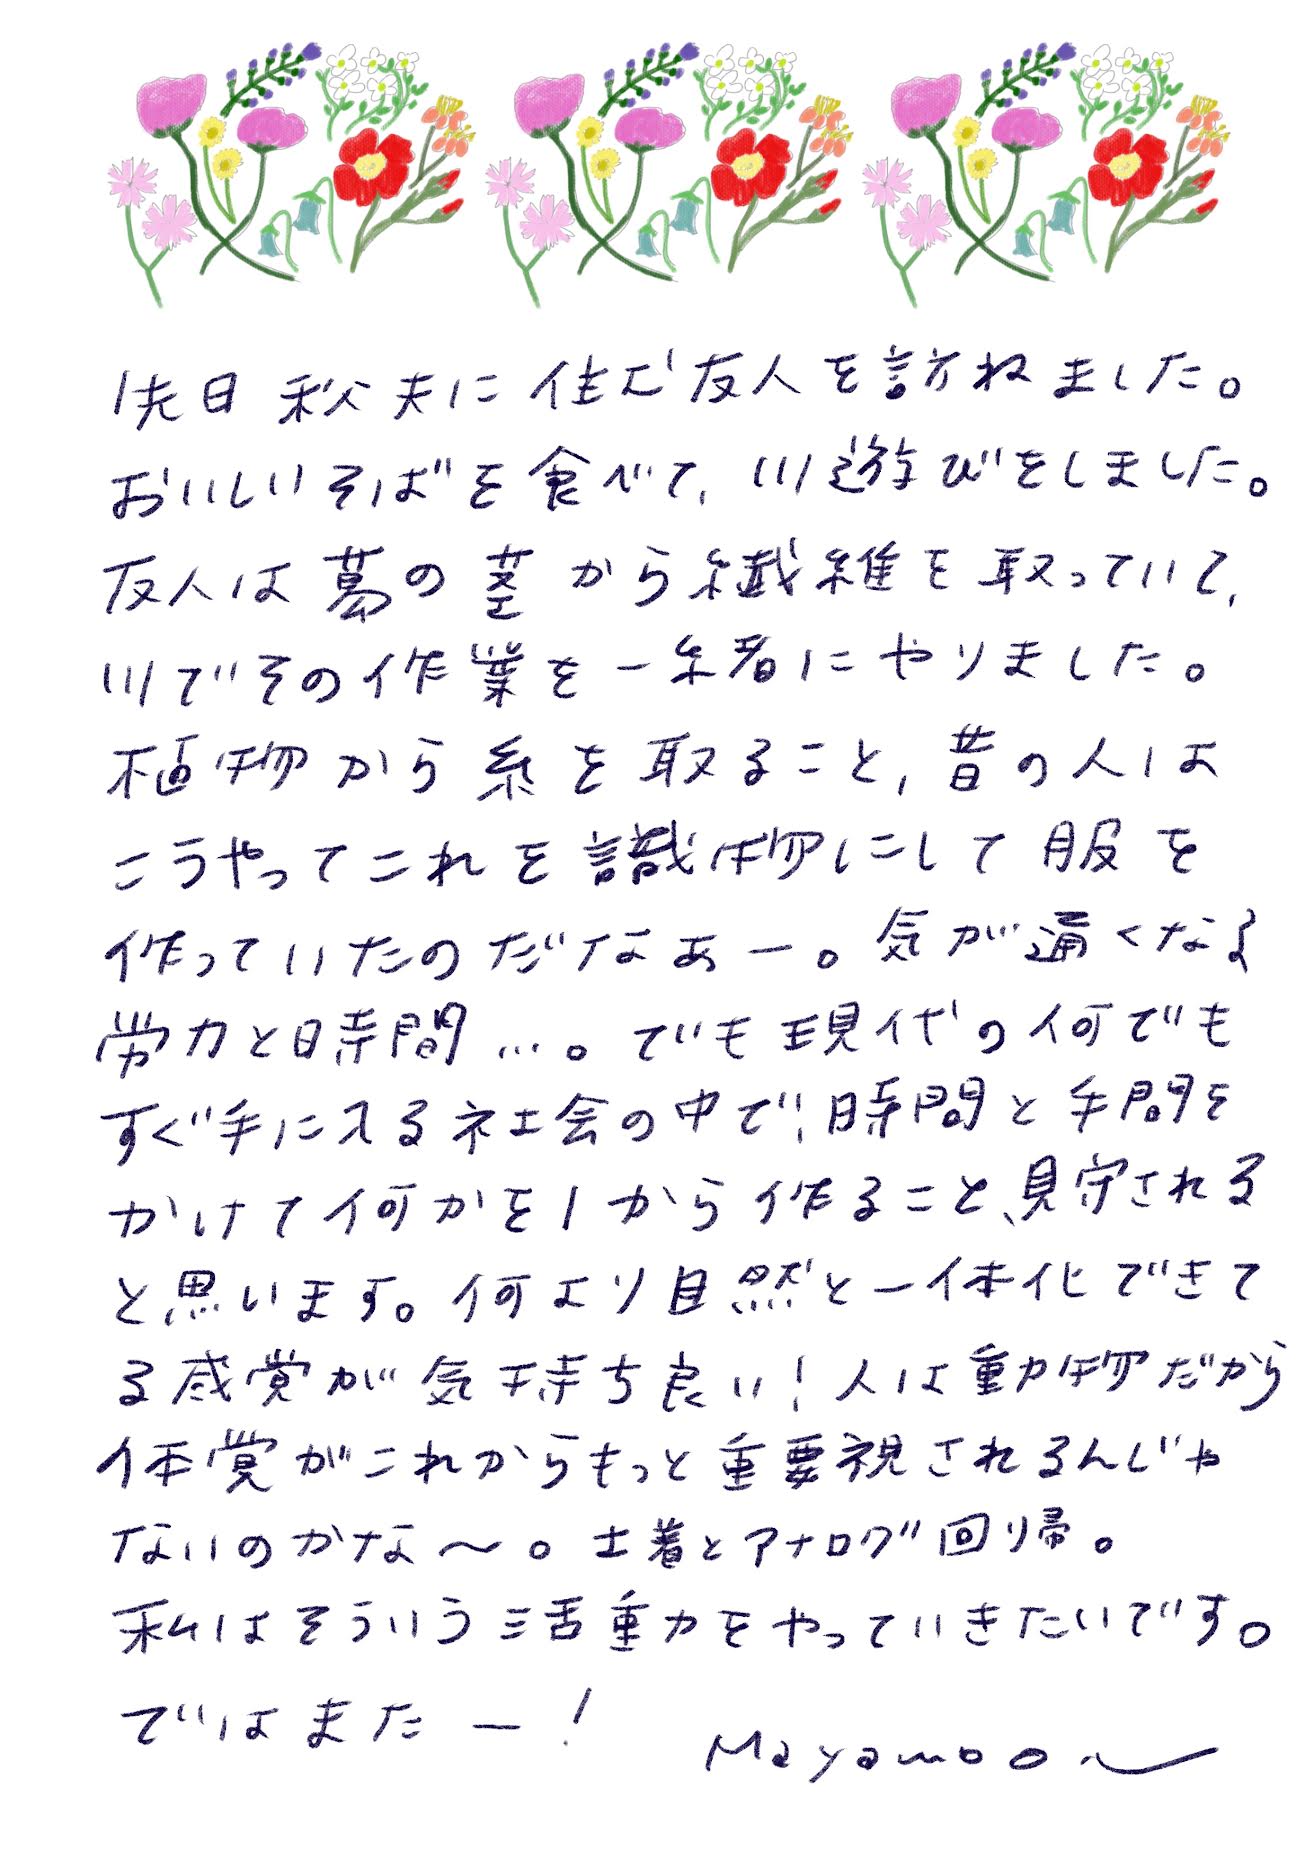 先日 秩父に 住む 友人を訪ねました。
おいしいそばを食べて、川遊びをしました。
友人は葛の茎から繊維を取っていて、
川でその作業を一緒にやりました。
植物から糸を取ること、昔の人は
こうやってこれを識物にして服を
作っていたのだなぁー。気が遠くなる
労力と時間…。でも現代の何でも
すぐ手に入る社会の中で、時間と手間を
かけて何かを1から作ること、見守される
と思います。何より自然と一体化できて
る感覚が気持ち良い！人は動物だから
体覚がこれからもっと重要視されるんじゃ
ないのかな〜。土着とアナログ回帰。
私はそういう活動をやっていきたいです。
ではまたー！
Mayamoon